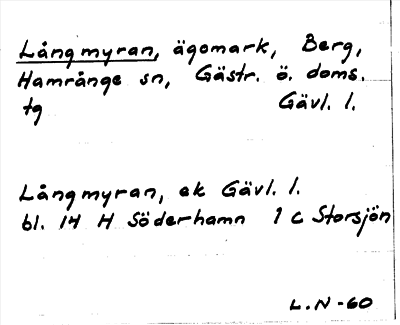 Långmyran, ägomark, Berg,
Hamrånge sn, Gästr. ö. doms.
tg Gävl. l.
Långmyran, ek Gävl. l.
bl. 14 H Söderhamn 1 c Storsjön
L.N-60